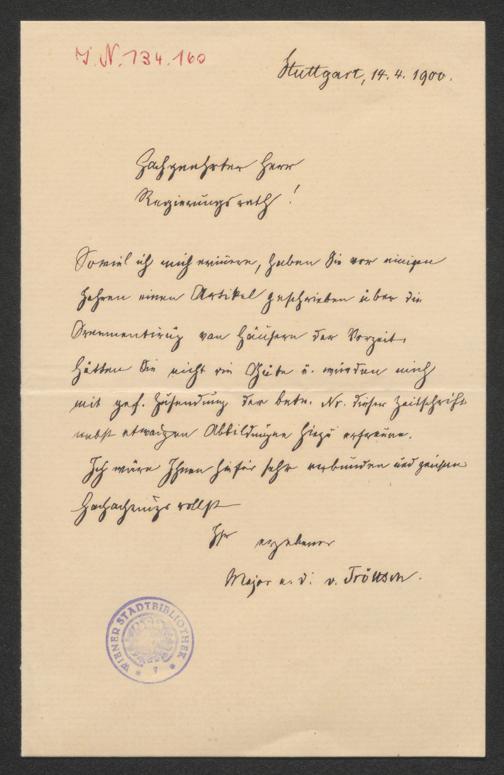 J. N. 134.160
Stuttgart, 14. 4. 1900.
Hochgeehrter Herr
Regierungsrath!
Soviel ich mich erinnere, haben Sie vor einigen
Jahren einen Artikel geschrieben über die
Ornamentirung von Häusern der Vorzeit.
Hätten Sie nicht die Güte u. würden mich
mit gef. Zusendung der betr. Nr. dieser Zeitschrift
nebst etwaigen Abbildungen hiezu erfreuen.
Ich wäre Ihnen hiefür sehr verbunden und zeichne
hochachtungsvollst
Ihr ergebener
Major a. D. v. Tröltsch.
WIENER STADTBIBLIOTHEK